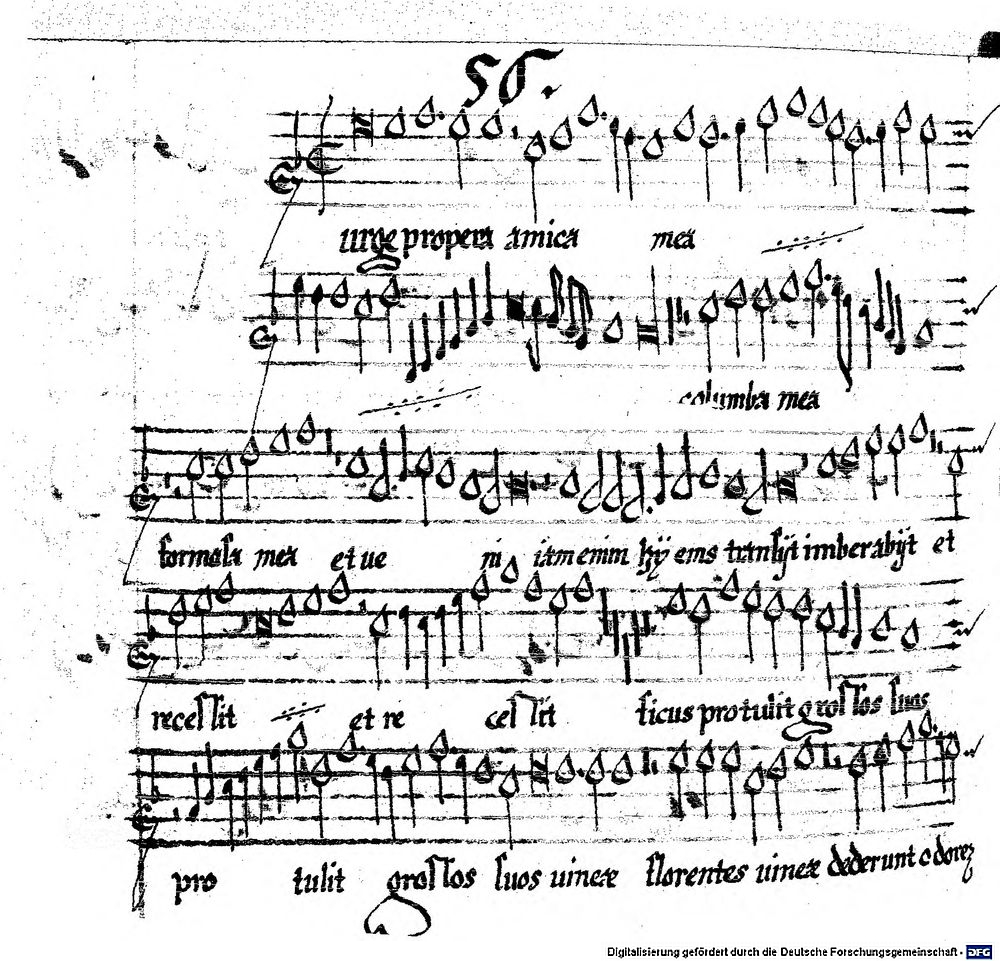 56.
urge propera amica mea
columba mea
formosa mea et ue ni iam enim hyems transijt imber abijt et
recessit et re cessit ficus protulit grossos suos
pro tulit grossos suos uineæ florentes uineæ dederunt odorez
Digitalisierung gefördert durch die Deutsche Forschungsgemeinschaft - DFG